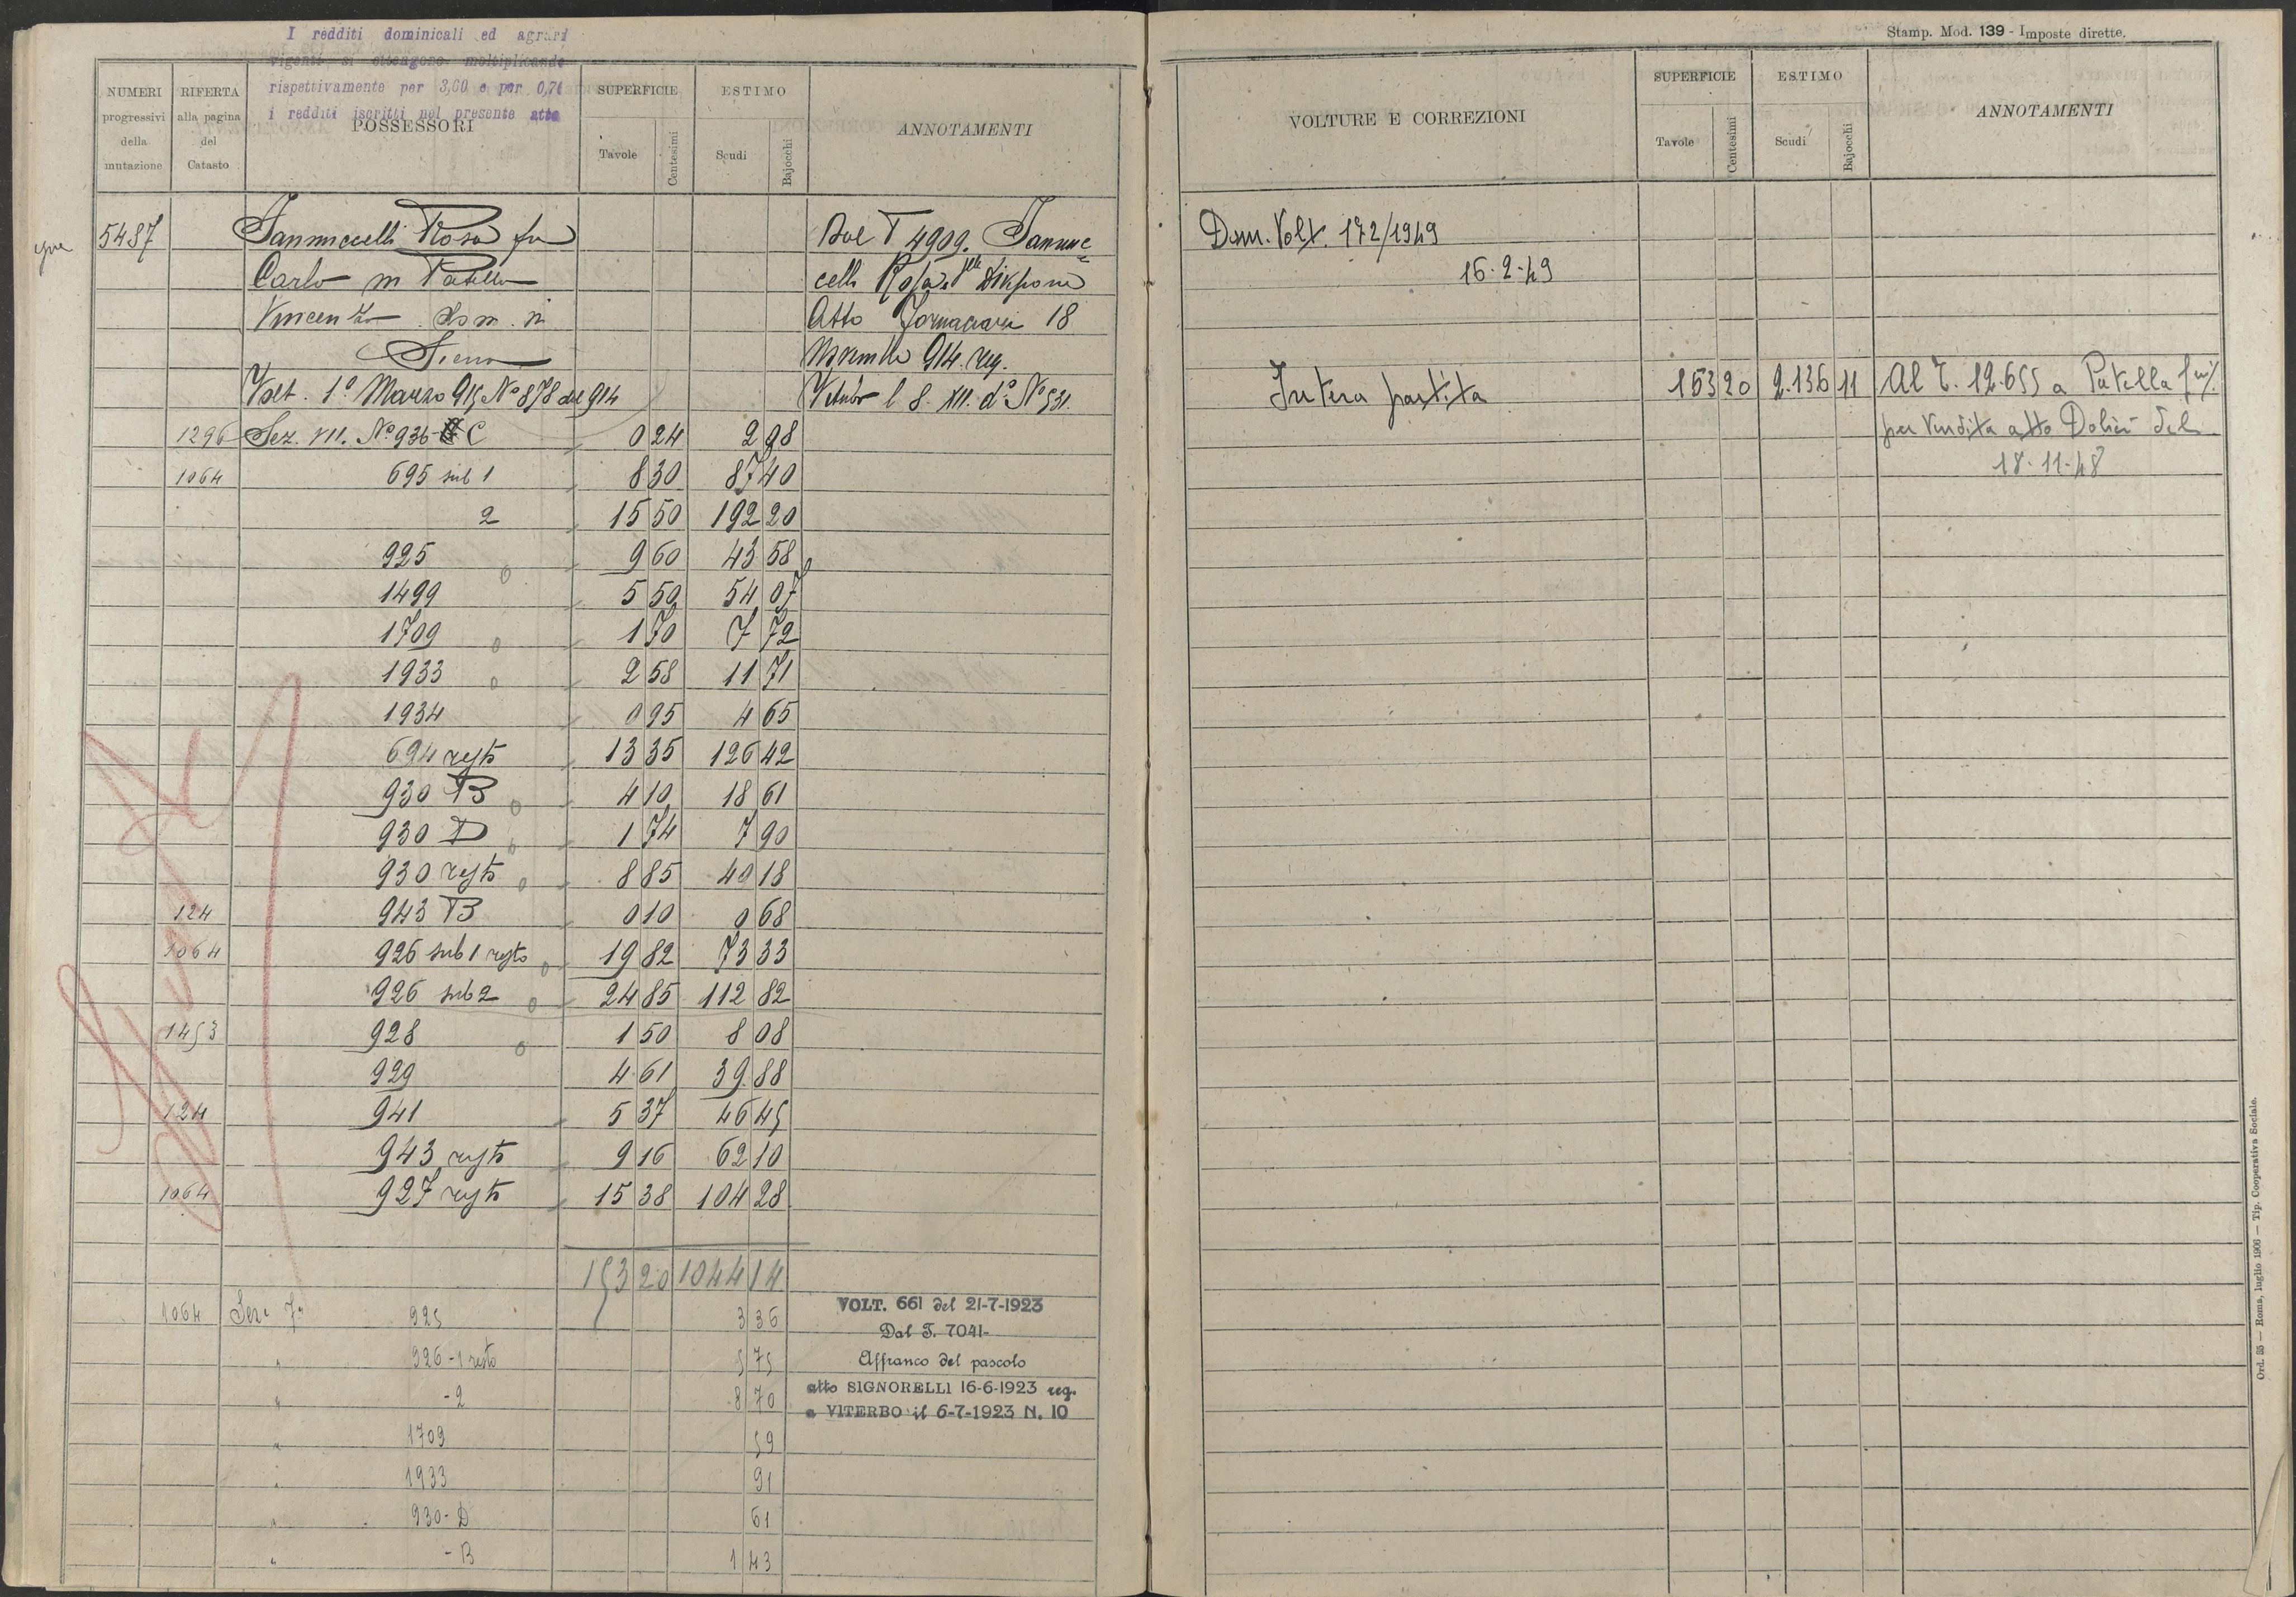 I redditi dominicali ed agrari
vigenti si ottengono moltiplicando
rispettivamente per 3,60 e per 0,71
i redditi iscritti nel presente atto
NUMERI progressivi della mutazione
RIFERTA alla pagina del Catasto
POSSESSORI
SUPERFICIE
Tavole Centesimi
ESTIMO
Scudi Bajocchi
ANNOTAMENTI
5487 Iannuccelli Rosa fu Dal T 4909. Iannuc
Carlo m Patella celli Rosa
Vincenzo Dom. in Atto Fornaciari 18
Siena 914. reg.
Volt. 1º Marzo 915 Nº 878 del 914 Viterbo l 8. XII. dº Nº 531.
1296 Sez. VII. Nº 936 C 0 24 2 98
1064 695 sub 1 8 30 87 40
2 15 50 192 20
925 9 60 43 58
1499 5 50 54 07
1709 1 70 7 72
1933 2 58 11 71
1934 0 95 4 65
694 resto 13 35 126 42
930 B 4 10 18 61
930 D 1 74 7 90
930 resto 8 85 40 18
124 943 B 0 10 0 68
1064 926 sub 1 resto 19 82 73 33
926 sub 2 24 85 112 82
1453 928 1 50 8 08
929 4 61 39 88
124 941 5 37 46 45
943 resto 9 16 62 10
1064 927 resto 15 38 104 28
153 20 1044 14
1064 Sez. 7ª 925 3 36 VOLT. 661 del 21-7-1923
Dal T. 7041-
" 926-1 resto 5 75 Affranco del pascolo
" -2 8 70 atto SIGNORELLI 16-6-1923 reg.
a VITERBO il 6-7-1923 N. 10
" 1709 59
" 1933 91
" 930-D 61
" -B 1 43
Stamp. Mod. 139 - Imposte dirette.
VOLTURE E CORREZIONI
SUPERFICIE
Tavole Centesimi
ESTIMO
Scudi Bajocchi
ANNOTAMENTI
Dom. Volt. 172/1949
16-2-49
Intera partita 153 20 2.136 11 Al T. 12.655 a Patella
per vendita atto del
18-11-48
Ord. 35 — Roma, luglio 1906 — Tip. Cooperativa Sociale.